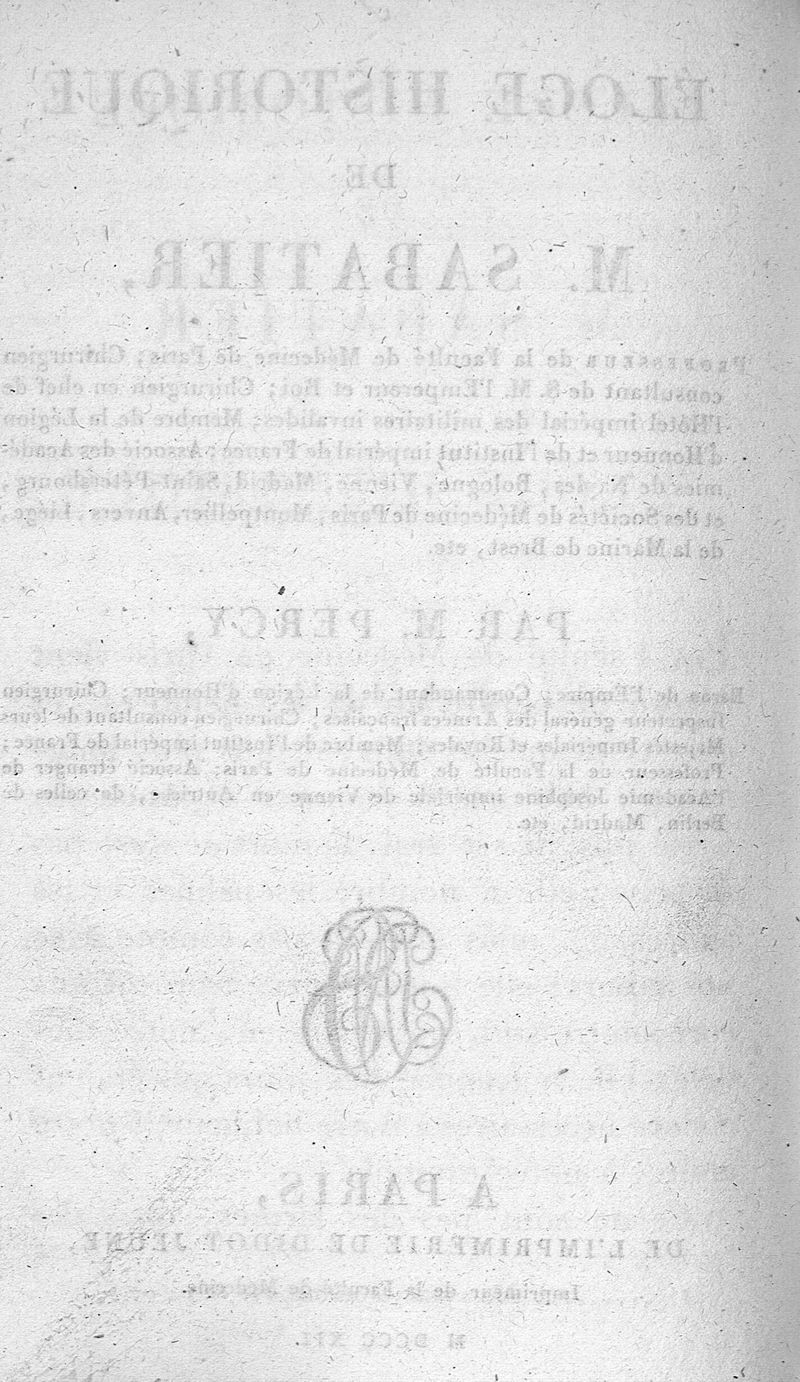 ÉLOGE HISTORIQUE
DE
M. SABATIER,
PROFESSEUR de la Faculté de Médecine de Paris; Chirurgien
consultant de S. M. l'Empereur et Roi; Chirurgien en chef de
l'Hôtel impérial des militaires invalides; Membre de la Légion
d'Honneur et de l'Institut impérial de France; Associé des Acadé-
mies de Naples, Bologne, Vienne, Madrid, Saint-Pétersbourg,
et des Sociétés de Médecine de Paris, Montpellier, Anvers, Liége,
de la Marine de Brest, etc.
PAR M. PERCY,
Baron de l'Empire; Commandant de la Légion d'Honneur; Chirurgien
Inspecteur général des Armées françaises; Chirurgien consultant de leurs
Majestés Impériales et Royales; Membre de l'Institut impérial de France;
Professeur de la Faculté de Médecine de Paris; Associé étranger de
l'Académie Joséphine impériale de Vienne en Autriche, de celles de
Berlin, Madrid, etc.
A PARIS,
DE L'IMPRIMERIE DE DIDOT JEUNE,
Imprimeur de la Faculté de Médecine.
M DCCC XII.